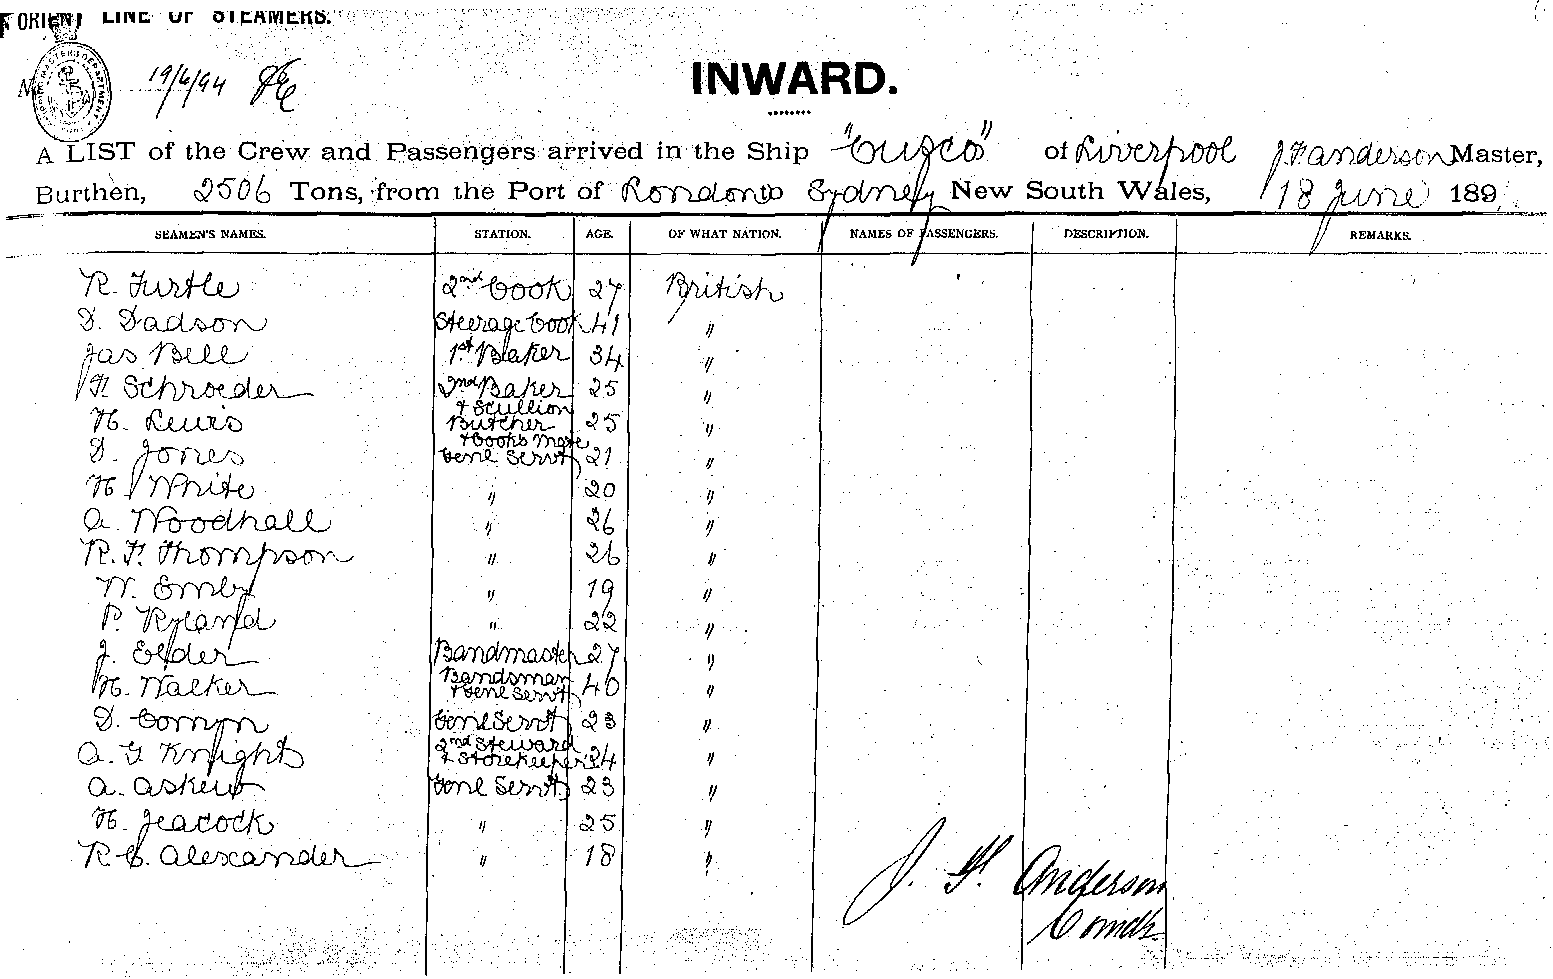 ORIENT LINE OF STEAMERS.
19/6/94
INWARD.
A LIST of the Crew and Passengers arrived in the Ship "Cuzco" of Liverpool J F Anderson Master,
Burthen, 2506 Tons, from the Port of London to Sydney New South Wales, 18 June 189
SEAMEN'S NAMES. STATION. AGE. OF WHAT NATION. NAMES OF PASSENGERS. DESCRIPTION. REMARKS.
R. Turtle 2nd Cook 27 British
D. Dadson Steerage Cook 41 "
Jas Bell 1st Baker 34 "
H Schroeder 2nd Baker 25 "
+ Scullion
H. Lewis Butcher 25 "
+ Cooks Mate
D. Jones Genl Servt 21 "
H. White " 20 "
A. Woodhall " 26 "
R. F. Thompson " 26 "
W. " 19 "
P. Ryland " 22 "
J. Elder Bandmaster 27 "
H. Walker Bandsman + Genl Servt 40 "
D. Comyn Genl Servt 23 "
A. G Knight 2nd Steward + Storekeeper 24 "
A. Askew Genl Servt 23 "
H. Jeacock " 25 "
R C. Alexander " 18 "
J. F. Anderson
Comdr.